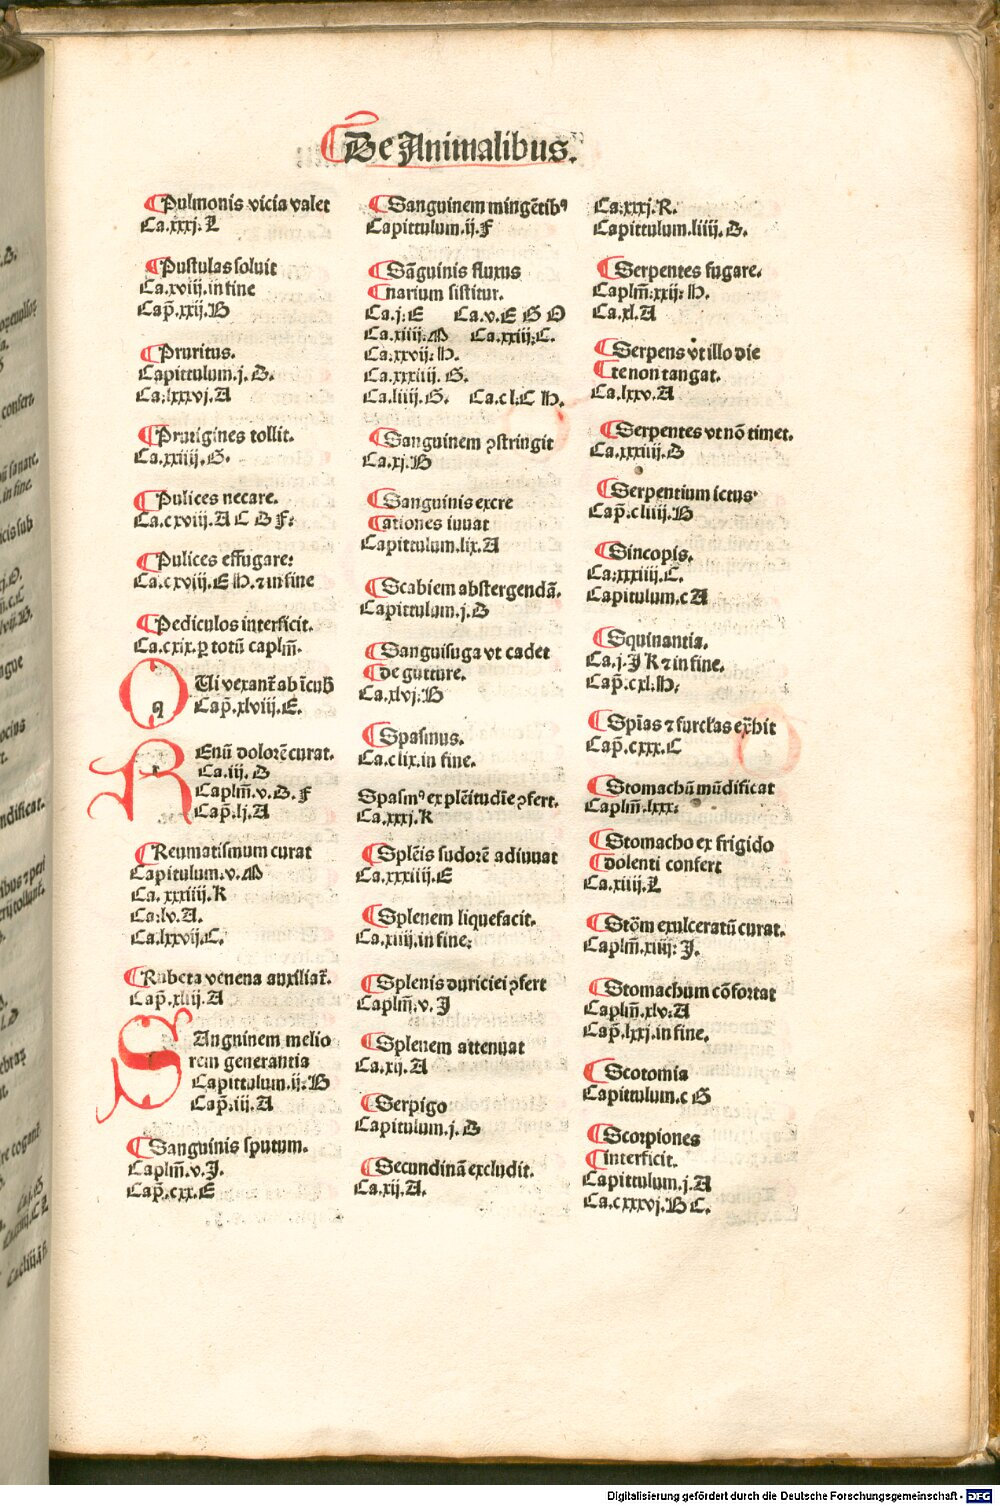 De Animalibus.
Pulmonis vicia valet
Ca.xxxj.L
Pustulas soluit
Ca.xviij.in fine
Cap̄.xxij.B
Pruritus.
Capittulum.j.D.
Ca.lxxvj.A
Prurigines tollit.
Ca.xxiiij.G.
Pulices necare.
Ca.cxviij.A C D F.
Pulices effugare.
Ca.cxviij.E H.⁊ in fine
Pediculos interficit.
Ca.cxix.ꝑ totū caplm̄.
Ui vexant᷑ ab īcub
Cap̄.xlviij.E.
Enū dolorē curat.
Ca.iij.D
Caplm̄.v.D.F
Cap̄.lj.A
Reumatismum curat
Capitulum.v.M
Ca.xxxiiij.K
Ca.lv.A.
Ca.lxxvij.C.
Rubeta venena auxiliat᷑.
Cap̄.xliij.A
Anguinem melio
rem generantia
Capittulum.ij.B
Cap̄.iij.A
Sanguinis sputum.
Caplm̄.v.J.
Cap̄.cxx.E
Sanguinem mingētibꝰ
Capittulum.ij.F
Sāguinis fluxus
narium sistitur.
Ca.j.E Ca.v.E G O
Ca.xiiij.M Ca.xxiij.C.
Ca.xxvij.H.
Ca.xxxiiij.G.
Ca.liiij.G. Ca.cl.C H.
Sanguinem ꝯstringit
Ca.xj.B
Sanguinis excre
ationes iuuat
Capittulum.lix.A
Scabiem abstergendā.
Capittulum.j.D
Sanguisuga vt cadet
de gutture.
Ca.xlvj.B
Spasmus.
Ca.clix.in fine.
Spasmꝰ ex plēitudīe ꝯfert.
Ca.xxxj.K
Splēis sudorē adiuuat
Ca.xxxiiij.E
Splenem liquefacit.
Ca.xiiij.in fine.
Splenis duriciei ꝯfert
Caplm̄.v.J
Splenem attenuat
Ca.xij.A
Serpigo
Capitulum.j.D
Secundinā excludit.
Ca.xij.A.
Ca.xxxj.R.
Capittulum.liiij.D.
Serpentes fugare.
Caplm̄.xxij.H.
Ca.xl.A
Serpens vt illo die
te non tangat.
Ca.lxxv.A
Serpentes vt nō timet.
Ca.xxxiiij.D
Serpentium ictus
Cap̄.cliiij.B
Sincopis.
Ca.xxxiiij.C.
Capitulum.c A
Squinantia.
Ca.j.J K ⁊ in fine.
Cap̄.cxl.H.
Spīas ⁊ furcłas ex̄hit
Cap̄.cxxx.C
Stomachū mūdificat
Caplm̄.lxxx.
Stomacho ex frigido
dolenti confert
Ca.xiiij.L
Stōm exulceratū curat.
Caplm̄.xiiij.J.
Stomachum cōfortat
Caplm̄.xlv.A
Cap̄.lxxj.in fine.
Scotomia
Capittulum.c G
Scorpiones
interficit.
Capittulum.j.A
Ca.cxxxvj.B C.
Digitalisierung gefördert durch die Deutsche Forschungsgemeinschaft - DFG